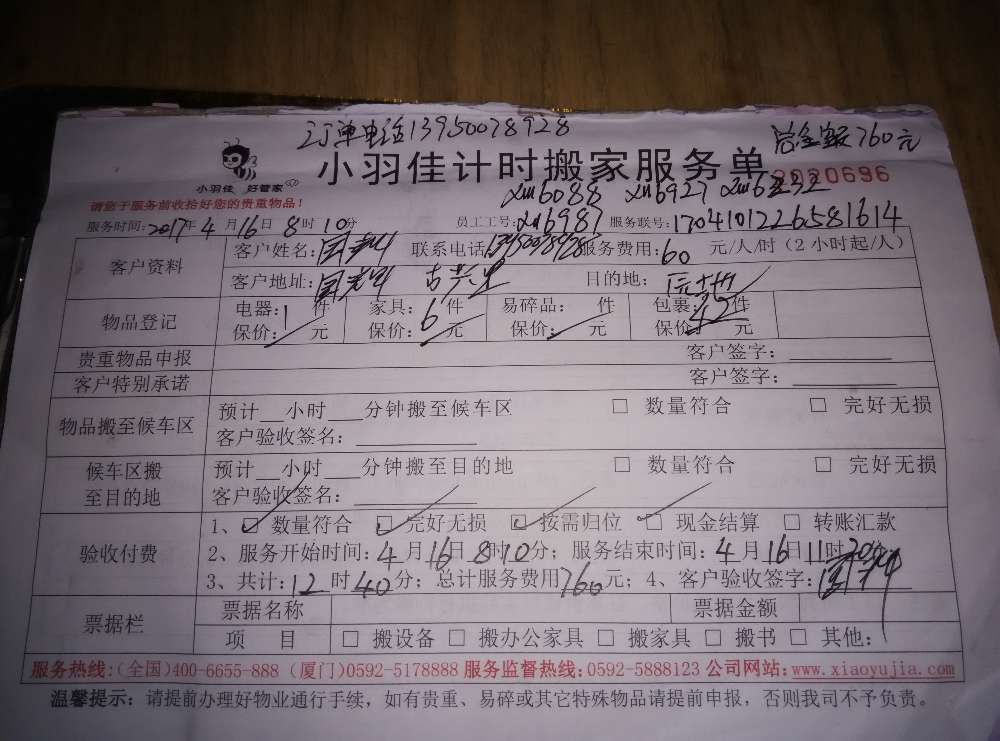 订单电话13950078928
总金额760元
小羽佳 好管家
小羽佳计时搬家服务单
0696
请您于服务前收拾好您的贵重物品！
xm6088 xm6927
服务时间：2017年4月16日8时10分 员工工号：xm6987 服务联号：1704101226581614
客户资料 客户姓名： 联系电话 服务费用：60元/人/时（2小时起/人）
客户地址： 古兴里 目的地：
物品登记 电器：1件 家具：6件 易碎品： 件 包裹：42件
保价： 元 保价： 元 保价： 元 保价： 元
贵重物品申报 客户签字：
客户特别承诺 客户签字：
物品搬至候车区 预计 小时 分钟搬至候车区 □ 数量符合 □ 完好无损
客户验收签名：
候车区搬至目的地 预计 小时 分钟搬至目的地 □ 数量符合 □ 完好无损
客户验收签名：
验收付费 1、☑ 数量符合 ☑ 完好无损 ☑ 按需归位 ☑ 现金结算 □ 转账汇款
2、服务开始时间：4月16日8时10分；服务结束时间：4月16日11时20分
3、共计：12时40分；总计服务费用760元；4、客户验收签字：
票据栏 票据名称 票据金额
项 目 □ 搬设备 □ 搬办公家具 □ 搬家具 □ 搬书 □ 其他：
服务热线：(全国)400-6655-888（厦门)0592-5178888 服务监督热线：0592-5888123 公司网站：www.xiaoyujia.com
温馨提示：请提前办理好物业通行手续，如有贵重、易碎或其它特殊物品请提前申报，否则我司不予负责。